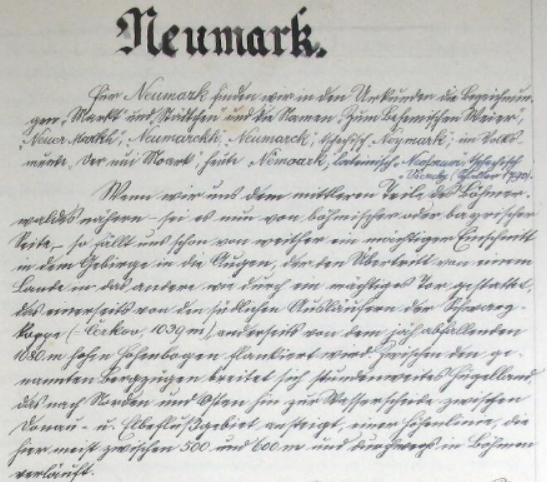 Neumark.
Für Neumark finden wir in den Urkunden die Bezeichnun-
gen „Markt und Stadtseu und die Namen „Zum Besemischen Weier",
„Neuer Markkt", Neumarckh, Neumarck, tschechisch Neymark; im Volks-
munde „Der nui Moark", heute Nemoark, lateinisch tschechisch
Wenn wir uns dem mittleren Teile des Böhmer-
waldes nähern – sei es nun von böhmischer oder bayrischer
Seite, – so fällt uns schon von weither ein mächtiger Einschnitt
in dem Gebirge in die Augen, der den Übertritt von einem
Lande in das andere wie durch ein mächtiges Tor gestattet,
das einerseits von den südlichen Ausläufern der Schwarz-
koppe (– Čerkov, 1039 m), anderseits von dem jäh abfallenden
1080 m hohen Hohenbogen flankiert wird. Zwischen den ge-
nannten Bergzügen breitet sich stundenweites Hügelland,
das nach Norden und Osten hin zur Wasserscheide zwischen
Donau- u. Elbeflußgebiet ansteigt, einer Höhenlinie, die
hier meist zwischen 500 und 600 m und durchwegs in Böhmen
verläuft.